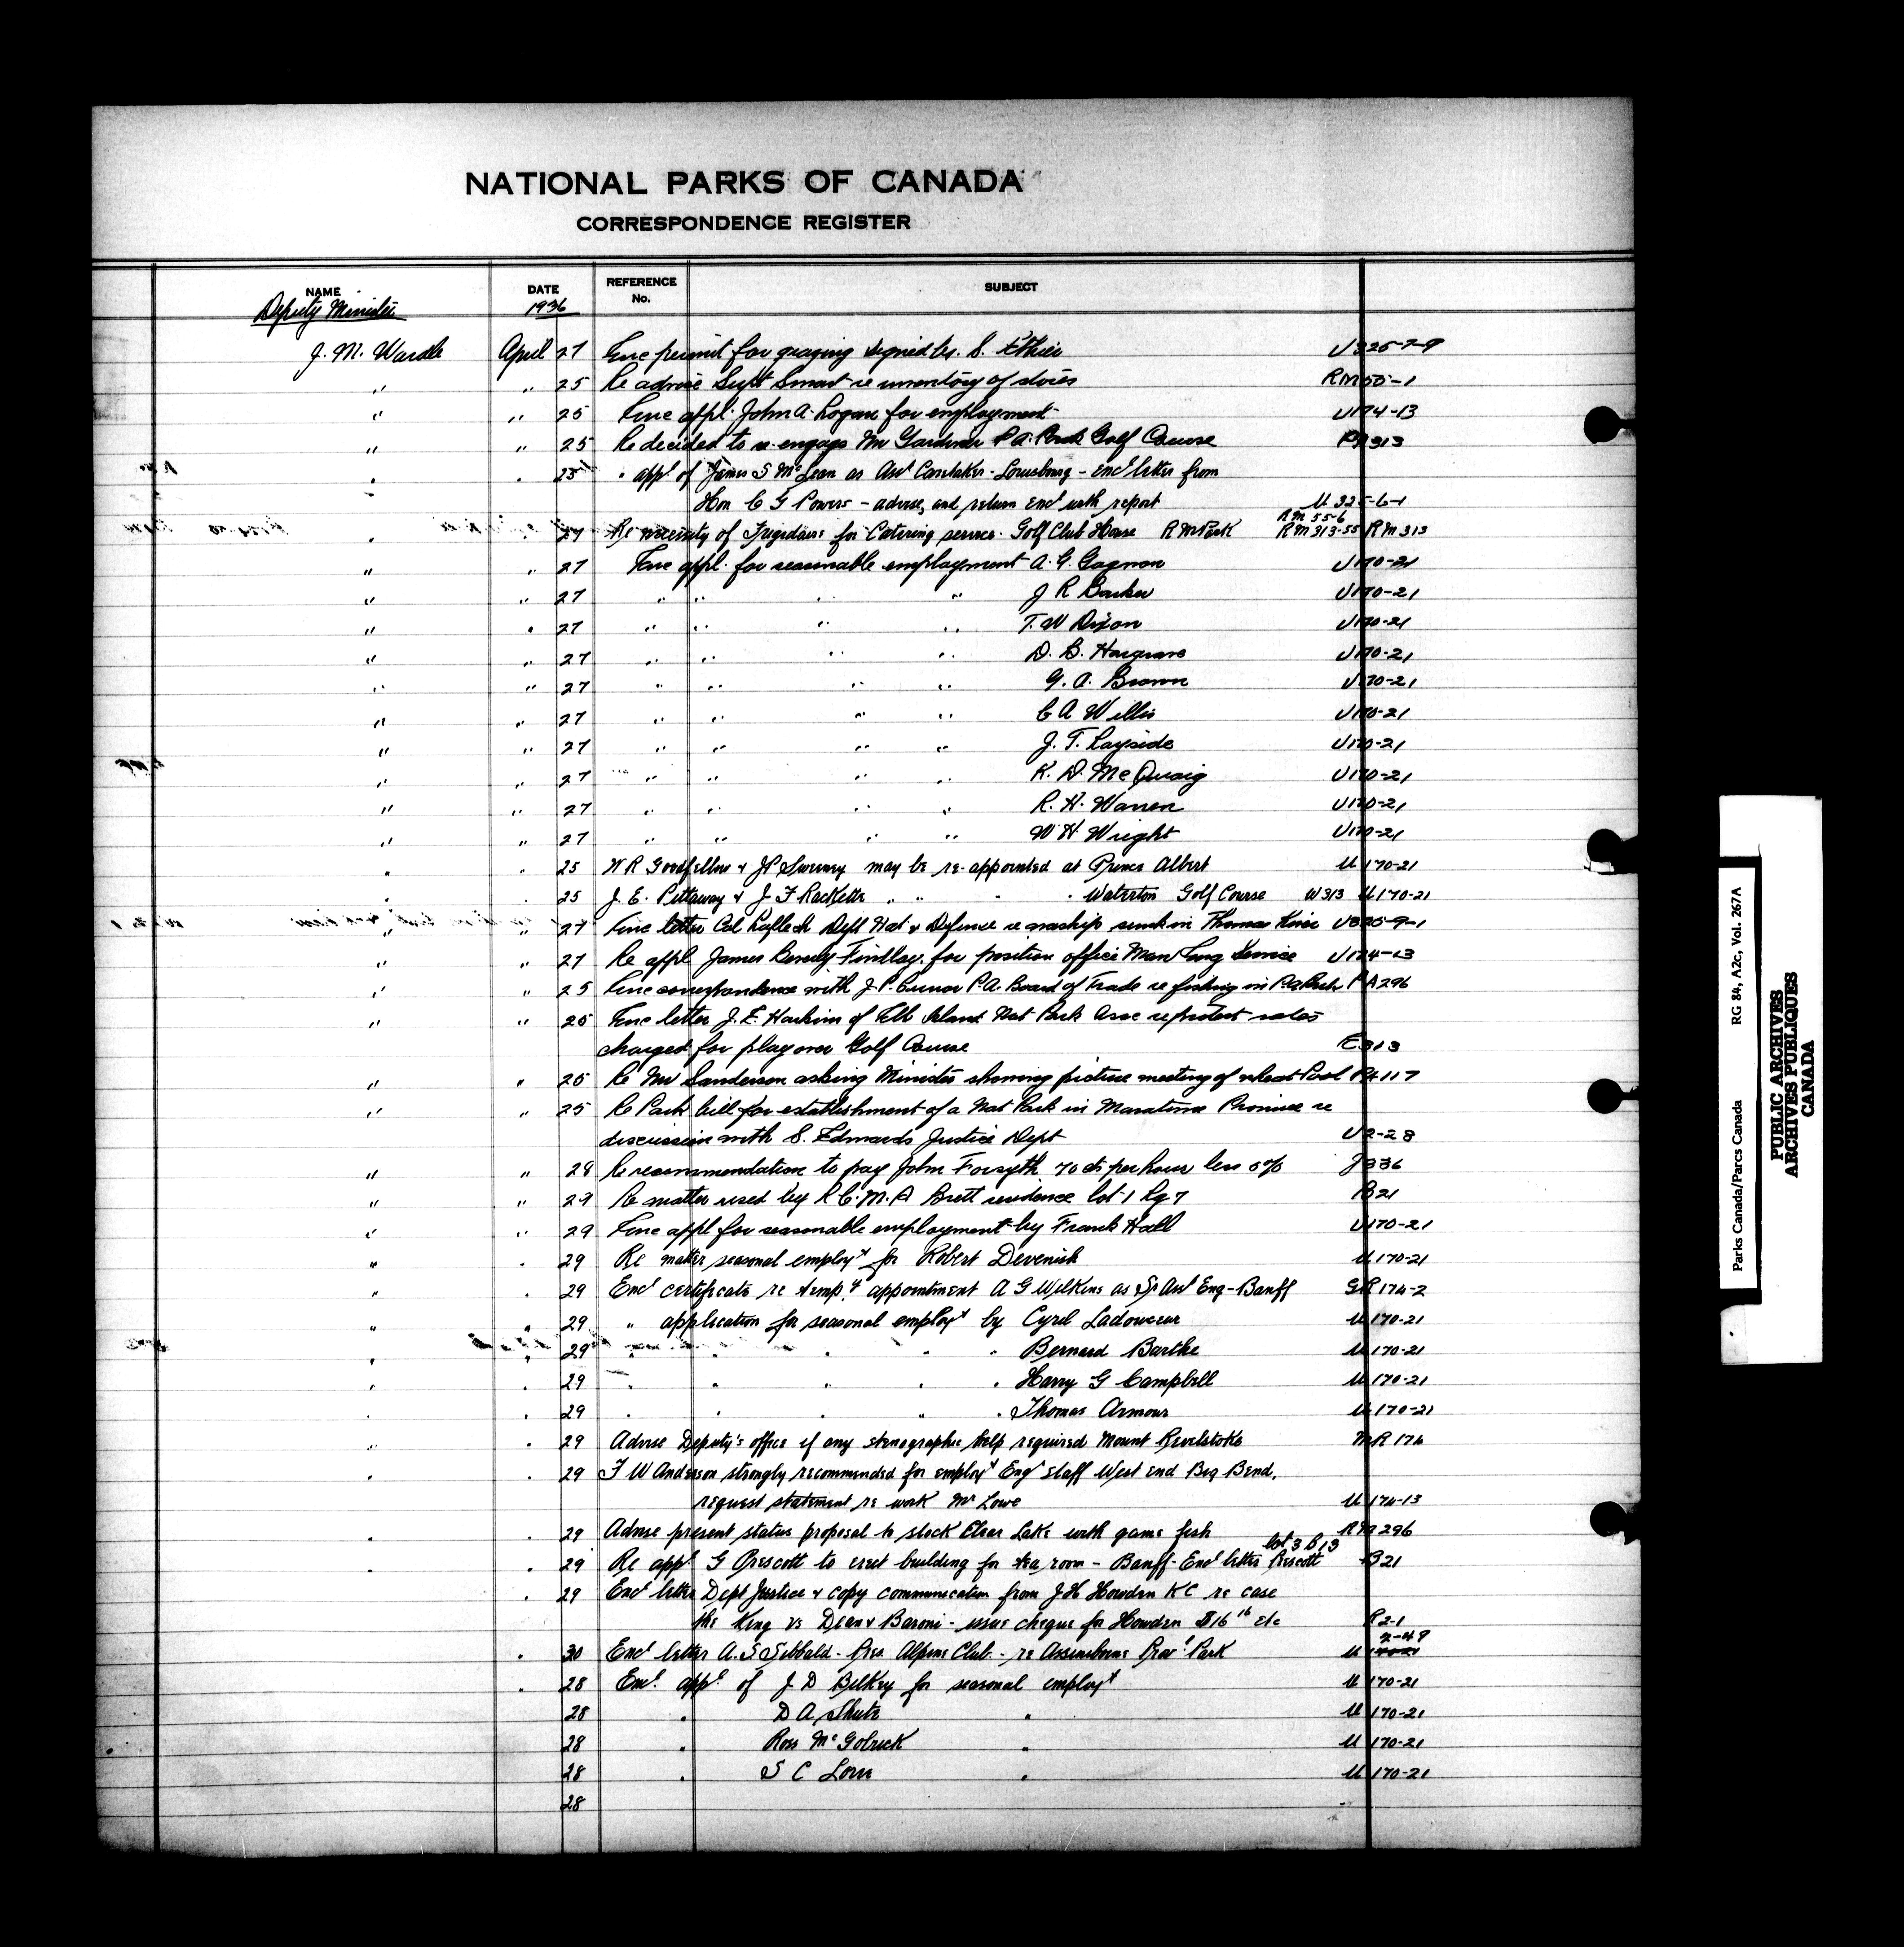 NATIONAL PARKS OF CANADA
CORRESPONDENCE REGISTER
NAME DATE REFERENCE No. SUBJECT
Deputy Minister 1936
J. M. Wardle April 27 Enc permit for grazing signed by. S. Ethier U325-7-9
" " 25 Re advise Supt Smart re inventory of stores RM55-1
" " 25 Enc appl. John A. Logan for employment U174-13
" " 25 Re decided to re-engage Mr Gardiner P.A. Park Golf Course PA313
" " 25 " appl of James S McLean as Asst Caretaker - Louisbourg - encl letter from
Hon C G Powers - advise, and return encl with report U 325-6-1
RM 55-6
" " 27 Re necessity of Frigidaire for Catering service. Golf Club House RM Park RM 313-55 RM 313
" " 27 Enc appl. for seasonable employment A. G. Gagnon U170-21
" " 27 " " " " J R Barker U170-21
" " 27 " " " " T. W Dixon U170-21
" " 27 " " " " D. B. Hargrave U170-21
" " 27 " " " " G. A. Brown U170-21
" " 27 " " " " C A Willis U170-21
" " 27 " " " " J. T. Rayside U170-21
" " 27 " " " " K. D. McQuaig U170-21
" " 27 " " " " R. H. Warren U170-21
" " 27 " " " " W H Wright U170-21
" " 25 W R Goodfellow & JP Sweeney may be re-appointed at Prince Albert U 170-21
" " 25 J. E. Pittaway & J F Rackette " " " " Waterton Golf Course W313 U170-21
" " 27 Enc letter Col Lafleche Dept Nat & Defense re warship sunk in Thomas River U325-9-1
" " 27 Re appl James Beverly Findlay. for position office Man Eng Service U174-13
" " 25 Enc correspondence with J. P. Curror P.A. Board of Trade re fishing in PA Park PA296
" " 25 Enc letter J. E. Harkim of Elk Island Nat Park Assc re protest rates
charged for play over Golf Course E313
" " 25 Re Mr Sanderson asking Minister showing picture meeting of wheat Pool PA117
" " 25 Re Park bill for establishment of a Nat Park in Maratime Province re
discussion with S. Edmards Justice Dept U2-28
" " 28 Re recommendation to pay John Forsyth 70 cts per hour less 5% J336
" " 29 Re matter used by R.C.M.P Brett residence Lot-1 Bg 7 B21
" " 29 Enc appl for seasonable employment by Frank Hall U170-21
" " 29 Re matter seasonal employt for Robert Devenish U170-21
" " 29 Encl certificate re tempy appointment A G Wilkins as Sr Asst Eng - Banff GR174-2
" " 29 " application for seasonal employt by Cyril Ladouceur U170-21
" " 29 " " " " " Bernard Barthe U170-21
" " 29 " " " " " Harry G Campbell U170-21
" " 29 " " " " " Thomas Armour U170-21
" " 29 Advise Deputy's office if any stenographic help required Mount Revelstoke MR 174
" " 29 F W Anderson strongly recommended for employt Engr staff West end Big Bend,
request statement re work Mr Lowe U 174-13
" " 29 Advise present status proposal to stock Clear Lake with game fish RM296
Lot 3 B 13
" " 29 Re appl G Prescott to erect building for tea room - Banff - Encl letter Prescott B21
" 29 Encl letter Dept Justice & copy communication from J H Howden KC re case
the King vs Dean & Baroni - issue cheque for Howden $16 16 etc R2-1
2-49
" 30 Encl letter A. S Sibbald - Pres Alpine Club - re Assiniboine Provl Park U
" 28 Encl appl of J D Belkey for seasonal employt U 170-21
28 " D A Shute " U 170-21
28 " Ross McGolrick " U 170-21
28 " S C Lowe " U 170-21
28
Parks Canada/Parcs Canada RG 84, A2c, Vol. 267A
PUBLIC ARCHIVES
ARCHIVES PUBLIQUES
CANADA